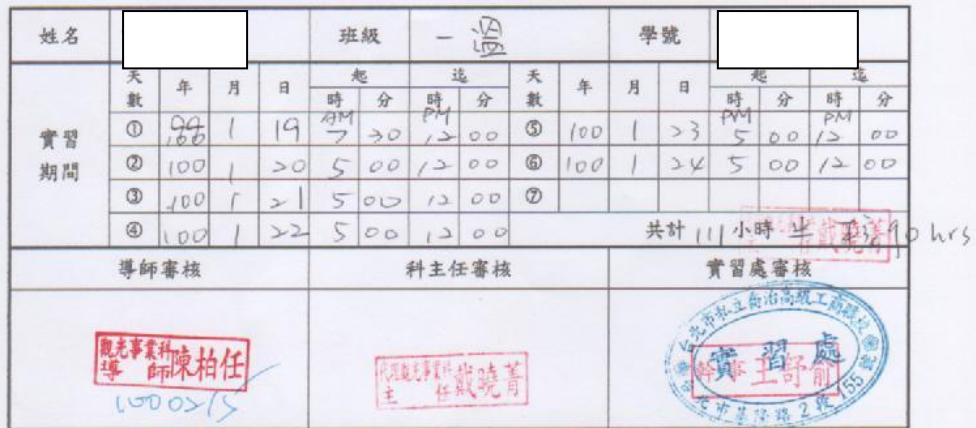 姓名 班級 一溫 學號
實習期間
天數 年 月 日 起 迄 天數 年 月 日 起 迄
時 分 時 分 時 分 時 分
AM PM PM PM
① 100 1 19 7 30 12 00 ⑤ 100 1 23 5 00 12 00
② 100 1 20 5 00 12 00 ⑥ 100 1 24 5 00 12 00
③ 100 1 21 5 00 12 00 ⑦
④ 100 1 22 5 00 12 00 共計 111 小時 半 90 hrs
戴曉菁
導師審核 科主任審核 實習處審核
觀光事業科
導師 陳柏任
1000215
代理觀光事業科
主任 戴曉菁
台北市私立喬治高級工商職校
實習處
幹事 王舒俞
台北市基隆路2段155號